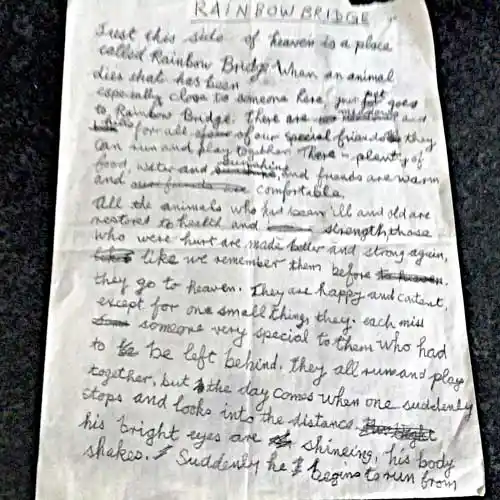 RAINBOW BRIDGE
Just this side of heaven is a place
called Rainbow Bridge. When an animal
dies that has been
especially close to someone here, your pet goes
to Rainbow Bridge. There are meadows and
for all of our special friends they
can run and play together. There is plenty of
food, water and sunshine, and friends are warm
and our friends are comfortable.
All the animals who had been ill and old are
restored to health and strength, those
who were hurt are made better and strong again,
like we remember them before to heaven.
they go to heaven. They are happy and content,
except for one small thing, they. each miss
someone very special to them who had
to be left behind, they all run and play
together, but the day comes when one suddenly
stops and looks into the distance.
his bright eyes are shineing, his body
shakes. Suddenly he begins to run from